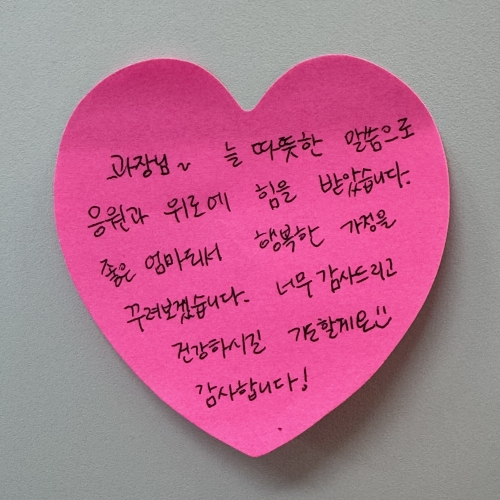 과장님~ 늘 따뜻한 말씀으로
응원과 위로에 힘을 받았습니다.
좋은 엄마되서 행복한 가정을
꾸려보겠습니다. 너무 감사드리고
건강하시길 기도할게요
감사합니다!